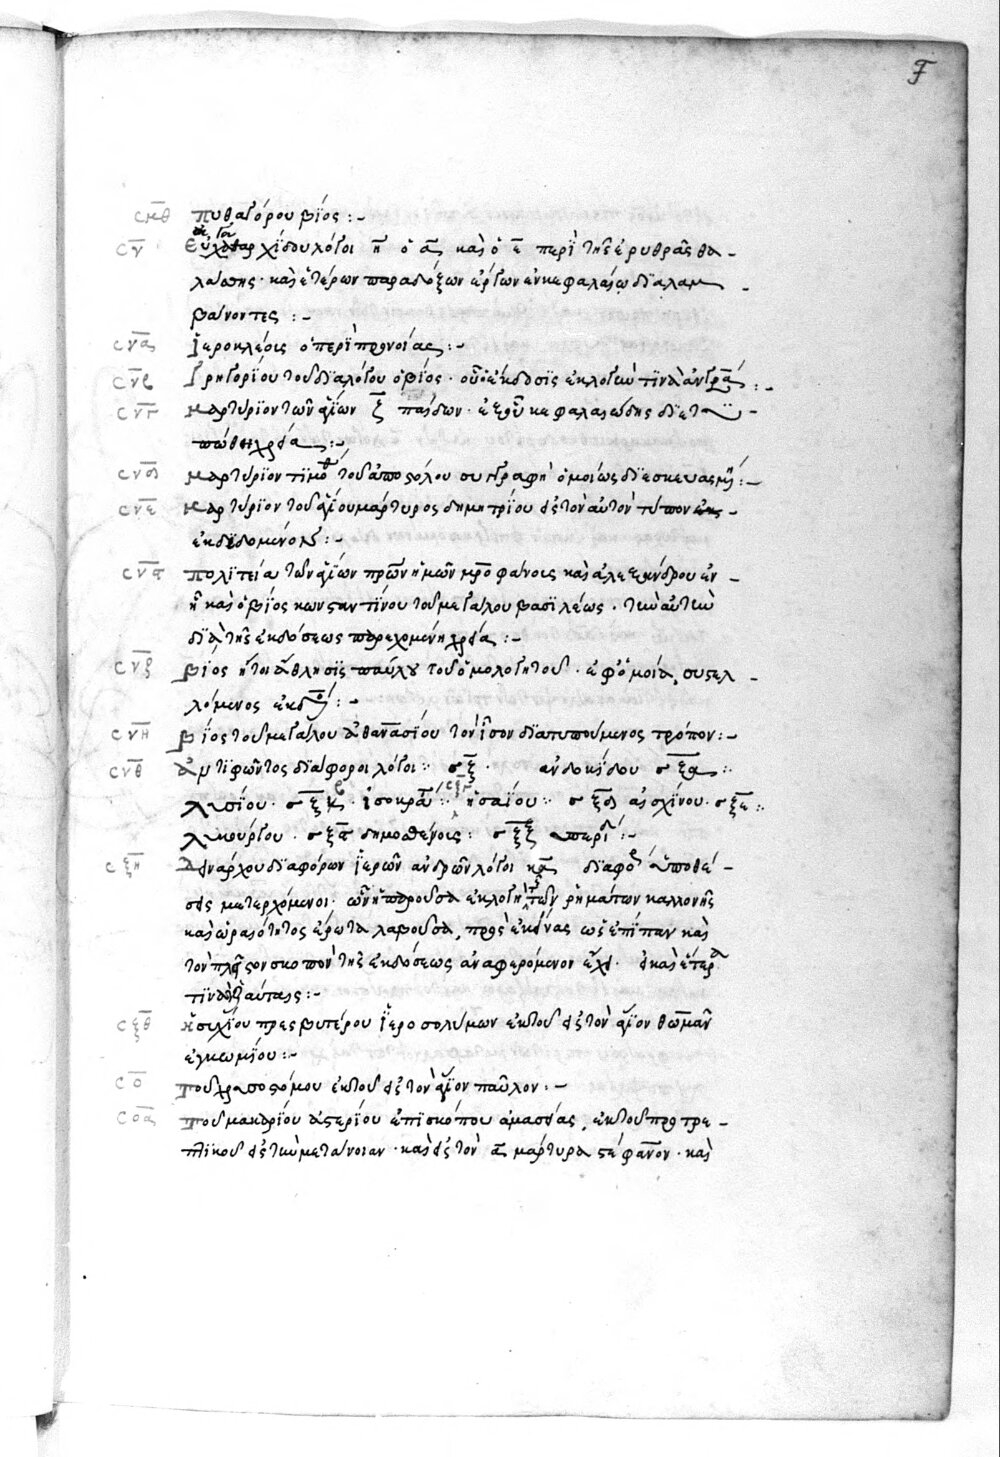 σμθ πυθαγόρου βίος :-
σν λόγοι η ὁ α καὶ ὁ ε περὶ τῆς ἐρυθρᾶς θα-
λάσσης· καὶ ἑτέρων παραδόξων ἔργων ἐν κεφαλαίῳ διαλαμ-
βάνοντες :-
σνα ἱεροκλέους ὁ περὶ προνοίας :-
σνβ Γρηγορίου τοῦ διαλόγου ὁ βίος· οὗ ἡ ἔκδοσις ἐκλογὴν τινὰ :-
σνγ μαρτύριον τῶν ἁγίων ζ παίδων· κεφαλαιώδης
χρεία :-
σνδ μαρτύριον τιμοθ τοῦ ἀποστόλου συγγραφὴ ὁμοίως διεσκευασμ :-
σνε μαρτύριον τοῦ ἁγίου μάρτυρος δημητρίου εἰς τὸν αὐτὸν τύπον
ἐκδιδομένον :-
σνϛ πολιτεία τῶν ἁγίων πρων ἡμῶν μητροφάνους καὶ ἀλεξάνδρου ἐν-
ᾗ καὶ ὁ βίος κωνσταντίνου τοῦ μεγάλου βασιλέως· τὴν αὐτὴν
διὰ τῆς ἐκδόσεως παρεχομένη χρεία :-
σνζ βίος ἤτοι ἄθλησις παύλου τοῦ ὁμολογητοῦ· ἐφ' ὁμοία, συστελ-
λόμενος :-
σνη βίος τοῦ μεγάλου ἀθανασίου τὸν ἴσον διατυπούμενος τρόπον :-
σνθ ἀντιφῶντος διάφοροι λόγοι :· σξ · ἀνδοκίδου σξα :·
λυσίου · σξβ · ἰσοκρα :· σξγ ἡσαίου :· σξδ αἰσχίνου · σξε :·
λυκούργου · σξϛ δημοσθένους : σξζ ὑπερι :-
σξη Δεινάρχου διαφόρων ἱερῶν ἀνδρῶν λόγοι κα διαφο ὑποθέ-
σεις μετερχόμενοι· ὧν ἡ παροῦσα ἐκλογὴ τῶν ῥημάτων καλλονῆς
καὶ ὡραιότητος ἔρωτα λαβοῦσα, πρὸς ἐκείνας ὡς ἐπίπαν καὶ
τὸν πλεῖστον σκοπὸν τῆς ἐκδόσεως ἀναφερόμενον ἔχει· εἰ καὶ ἕτερα
τινὰ ταύταις :-
σξθ ἡσυχίου πρεσβυτέρου ἱεροσολύμων ἐκ τοῦ εἰς τὸν ἅγιον θωμᾶν
ἐγκωμίου :-
σο τοῦ χρυσοστόμου ἐκ τοῦ εἰς τὸν ἅγιον παῦλον :-
σοα τοῦ μακαρίου ἀστερίου ἐπισκόπου ἀμασείας, ἐκ τοῦ προτρε-
πτικοῦ εἰς τὴν μετάνοιαν· καὶ εἰς τὸν α μάρτυρα στέφανον· καὶ